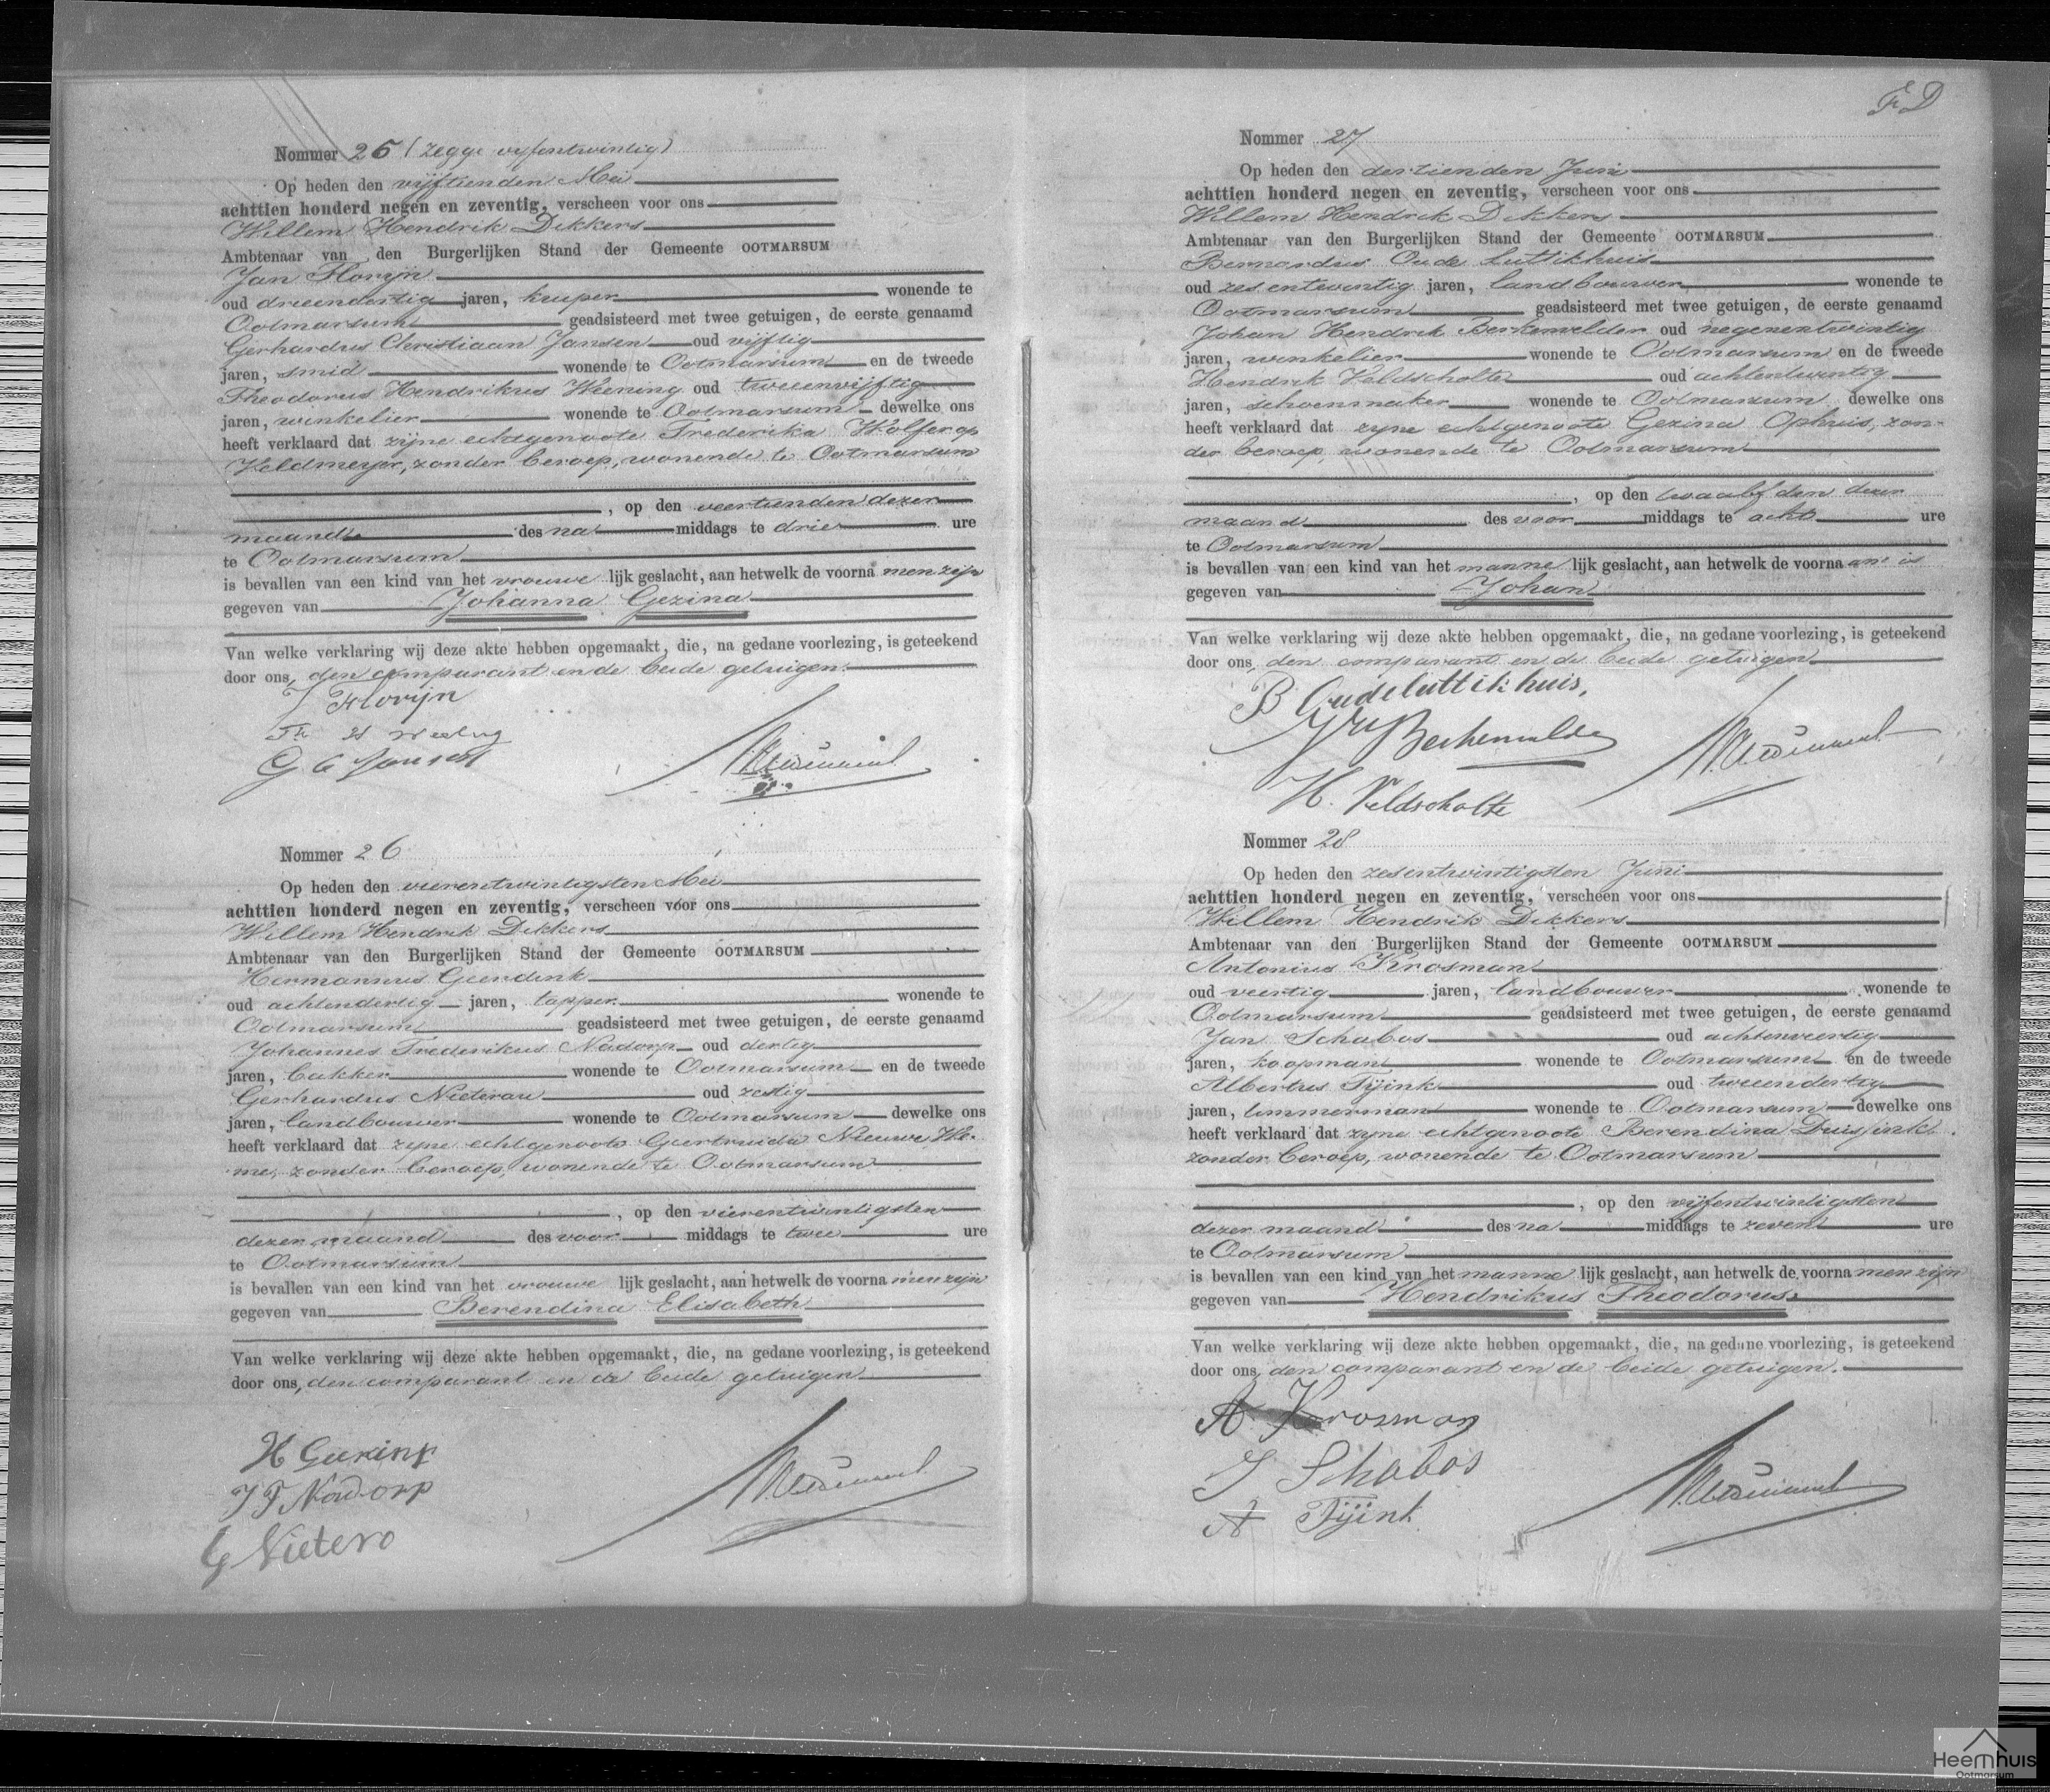 Nommer 25 (zegge vyfentwintig)
Op heden den vijftienden Mei
achttien honderd negen en zeventig, verscheen voor ons
Willem Hendrik Dikkers
Ambtenaar van den Burgerlijken Stand der Gemeente OOTMARSUM
Jan Florijn
oud drieendertig jaren, kuiper wonende te
Ootmarsum geadsisteerd met twee getuigen, de eerste genaamd
Gerhardus Christiaan Jansen oud vijftig
jaren, smid wonende te Ootmarsum en de tweede
Theodorus Hendrikus Weening oud tweeenvijftig
jaren, winkelier wonende te Ootmarsum dewelke ons
heeft verklaard dat zijne echtgenoote Frederika Wolferop
Veldmeyer, zonder beroep, wonende te Ootmarsum
, op den veertienden dezer
maand des na middags te drie ure
te Ootmarsum
is bevallen van een kind van het vrouwe lijk geslacht, aan hetwelk de voorna men zijn
gegeven van Johanna Gezina
Van welke verklaring wij deze akte hebben opgemaakt, die, na gedane voorlezing, is geteekend
door ons, den comparant en de beide getuigen.
J Florijn
G C Jansen
Nommer 26
Op heden den vierentwintigsten Mei
achttien honderd negen en zeventig, verscheen voor ons
Willem Hendrik Dikkers
Ambtenaar van den Burgerlijken Stand der Gemeente OOTMARSUM
Hermannus Geerdink
oud achtendertig jaren, tapper wonende te
Ootmarsum geadsisteerd met twee getuigen, de eerste genaamd
Johannes Frederikus Nadorp oud dertig
jaren, bakker wonende te Ootmarsum en de tweede
Gerhardus Nieterau oud zestig
jaren, landbouwer wonende te Ootmarsum dewelke ons
heeft verklaard dat zyne echtgenoote Geertruida Nieuwe We-
me, zonder beroep, wonende te Ootmarsum
, op den vierentwintigsten
dezer maand des voor middags te twee ure
te Ootmarsum
is bevallen van een kind van het vrouwe lijk geslacht, aan hetwelk de voorna men zyn
gegeven van Berendina Elisabeth
Van welke verklaring wij deze akte hebben opgemaakt, die, na gedane voorlezing, is geteekend
door ons, den comparant en de beide getuigen
H Geerink
J F Nadorp
G Nietero
Nommer 27
Op heden den dertienden Juni
achttien honderd negen en zeventig, verscheen voor ons
Willem Hendrik Dikkers
Ambtenaar van den Burgerlijken Stand der Gemeente OOTMARSUM
Bernardus Oude Luttikhuis
oud zesentwintig jaren, landbouwer wonende te
Ootmarsum geadsisteerd met twee getuigen, de eerste genaamd
Johan Hendrik Berkemelder oud negenentwintig
jaren, winkelier wonende te Ootmarsum en de tweede
Hendrik Veldscholte oud achtentwintig
jaren, schoenmaker wonende te Ootmarsum dewelke ons
heeft verklaard dat zyne echtgenoote Gezina Ophuis, zon-
der beroep, wonende te Ootmarsum
, op den twaalfden dezer
maand des voor middags te acht ure
te Ootmarsum
is bevallen van een kind van het manne lijk geslacht, aan hetwelk de voorna am is
gegeven van Johan
Van welke verklaring wij deze akte hebben opgemaakt, die, na gedane voorlezing, is geteekend
door ons, den comparant en de beide getuigen
B Oudeluttikhuis,
H. Veldscholte
Nommer 28
Op heden den zesentwintigsten Juni
achttien honderd negen en zeventig, verscheen voor ons
Willem Hendrik Dikkers
Ambtenaar van den Burgerlijken Stand der Gemeente OOTMARSUM
Antonius Krosman
oud veertig jaren, landbouwer wonende te
Ootmarsum geadsisteerd met twee getuigen, de eerste genaamd
Jan Schabos oud achtenveertig
jaren, koopman wonende te Ootmarsum en de tweede
Albertus Tijink oud tweeendertig
jaren, timmerman wonende te Ootmarsum dewelke ons
heeft verklaard dat zyne echtgenoote Berendina Duesjink
zonder beroep, wonende te Ootmarsum
, op den vijfentwintigsten
dezer maand des na middags te zeven ure
te Ootmarsum
is bevallen van een kind van het manne lijk geslacht, aan hetwelk de voorna men zijn
gegeven van Hendrikus Theodorus
Van welke verklaring wij deze akte hebben opgemaakt, die, na gedane voorlezing, is geteekend
door ons, den comparant en de beide getuigen.
A Krosman
J Schabos
A Tijink
Heemhuis
Ootmarsum